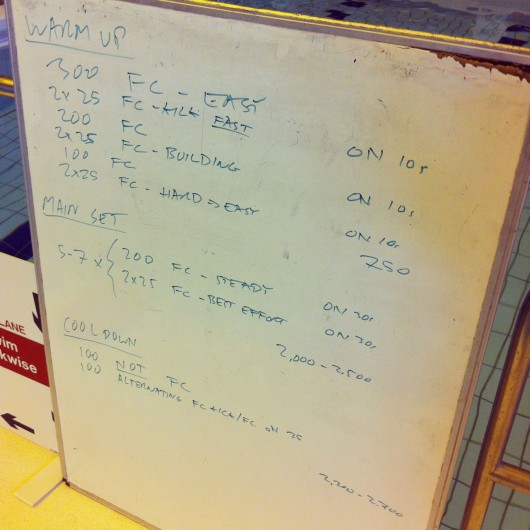 WARM UP
300 FC - EASY
2x25 FC - KICK FAST ON 10s
200 FC
2x25 FC - BUILDING ON 10s
100 FC
2x25 FC - HARD → EASY ON 10s
750
MAIN SET
5-7 x { 200 FC - STEADY ON 20s
2x25 FC - BEST EFFORT ON 20s
2,000 - 2,500
COOL DOWN
100 NOT FC
100 ALTERNATING FC KICK/FC ON 25
LANE
wim
kwise